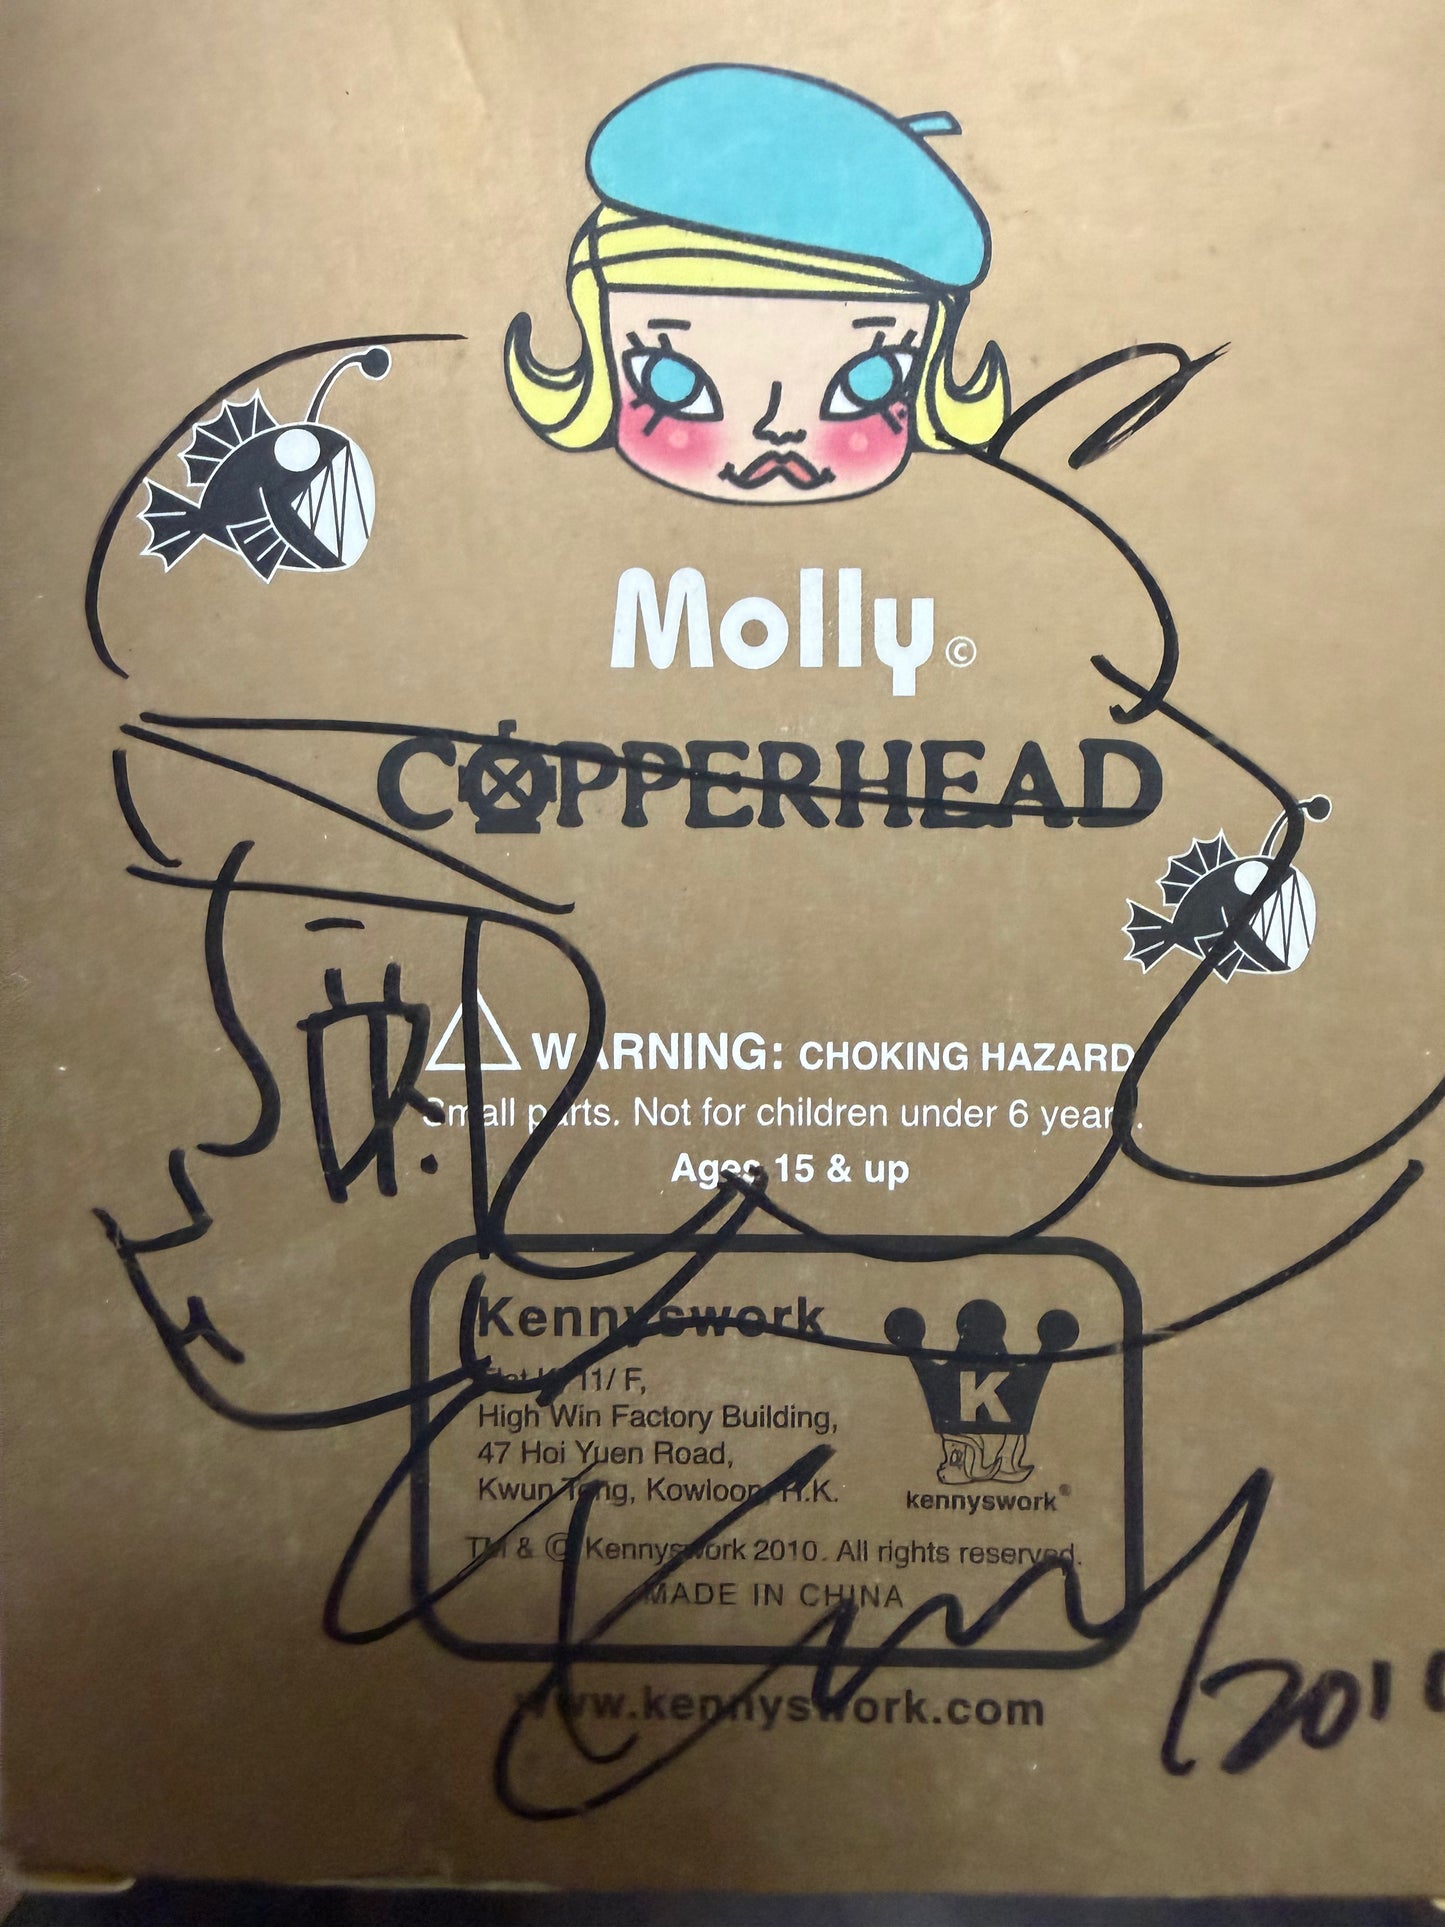 Molly©
COPPERHEAD
WARNING: CHOKING HAZARD
Small parts. Not for children under 6 years.
Ages 15 & up
Kennyswork
Flat K, 11/ F,
High Win Factory Building,
47 Hoi Yuen Road,
Kwun Tong, Kowloon, H.K.
K
kennyswork®
TM & © Kennyswork 2010. All rights reserved.
MADE IN CHINA
www.kennyswork.com
Kenny